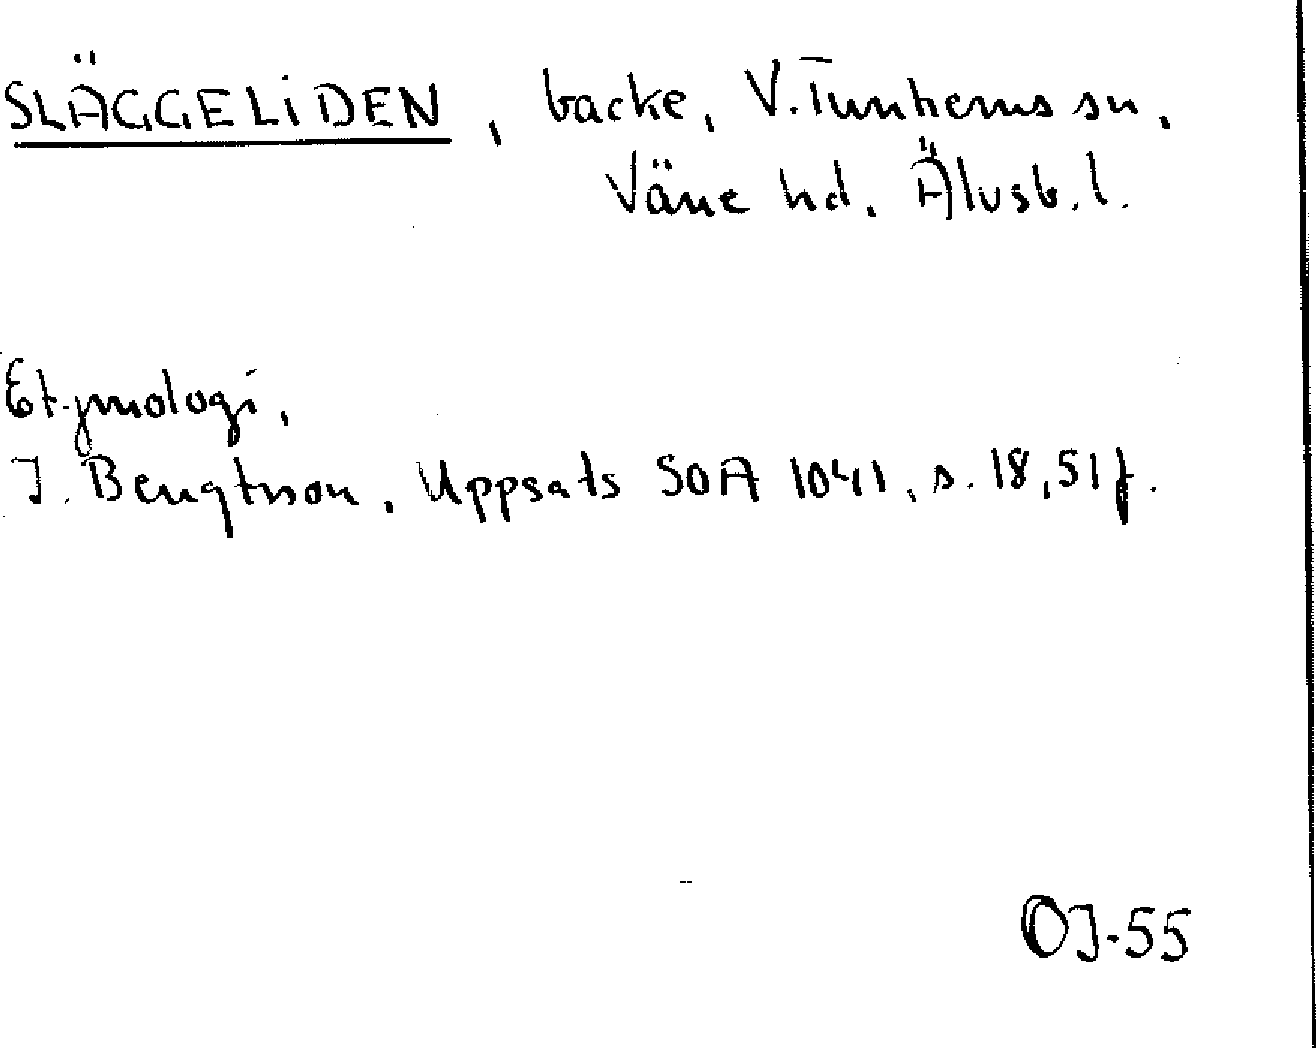 SLÄGGELIDEN, backe, V. Tunhems sn,
Väne hd. Älvsb. l.
Etymologi,
J. Bengtson, Uppsats SOA 1041, s. 18, 51 f.
OJ-55